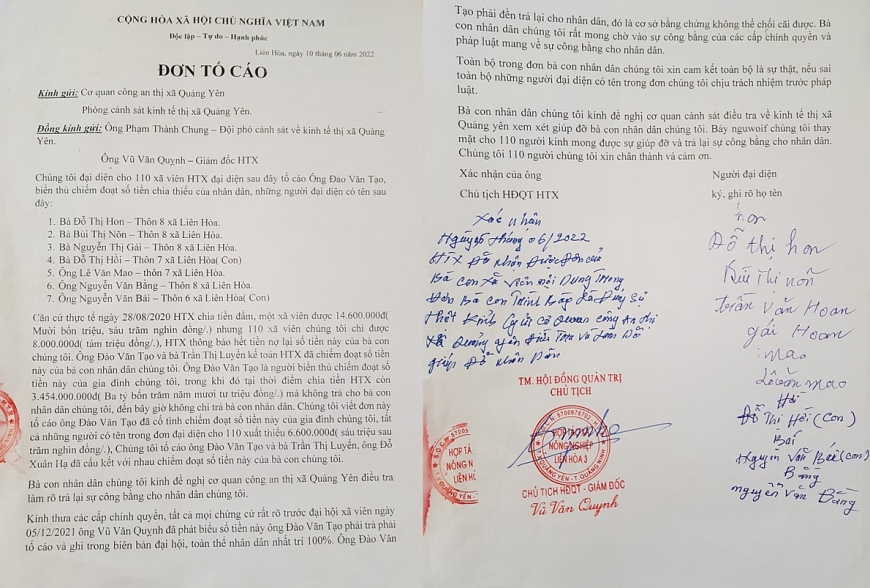 CỘNG HÒA XÃ HỘI CHỦ NGHĨA VIỆT NAM
Độc lập – Tự do – Hạnh phúc
Liên Hòa, ngày 10 tháng 06 năm 2022
ĐƠN TỐ CÁO
Kính gửi: Cơ quan công an thị xã Quảng Yên
Phòng cảnh sát kinh tế thị xã Quảng Yên.
Đồng kính gửi: Ông Phạm Thành Chung – Đội phó cảnh sát về kinh tế thị xã Quảng
Yên.
Ông Vũ Văn Quynh – Giám đốc HTX
Chúng tôi đại diện cho 110 xã viên HTX đại diện sau đây tố cáo Ông Đào Văn Tạo,
biển thủ chiếm đoạt số tiền chia thiếu của nhân dân, những người đại diện có tên sau
đây:
1. Bà Đỗ Thị Hon – Thôn 8 xã Liên Hòa.
2. Bà Bùi Thị Nõn – Thôn 8 xã Liên Hòa.
3. Bà Nguyễn Thị Gái – Thôn 8 xã Liên Hòa.
4. Bà Đỗ Thị Hồi – Thôn 7 xã Liên Hòa( Con)
5. Ông Lê Văn Mao – thôn 7 xã Liên Hòa.
6. Ông Nguyễn Văn Bằng – Thôn 8 xã Liên Hòa.
7. Ông Nguyễn Văn Bái – Thôn 6 xã Liên Hòa( Con)
Căn cứ thực tế ngày 28/08/2020 HTX chia tiền đầm, một xã viên được 14.600.000đ(
Mười bốn triệu, sáu trăm nghìn đồng/.) nhưng 110 xã viên chúng tôi chỉ được
8.000.000đ( tám triệu đồng/.), HTX thông báo hết tiền nợ lại số tiền này của bà con
chúng tôi. Ông Đào Văn Tạo và bà Trần Thị Luyến kế toán HTX đã chiếm đoạt số tiền
này của bà con nhân dân chúng tôi. Ông Đào Văn Tạo là người biển thủ chiếm đoạt số
tiền này của gia đình chúng tôi, trong khi đó tại thời điểm chia tiền HTX còn
3.454.000.000đ( Ba tỷ bốn trăm năm mươi tư triệu đồng/.) mà không trả cho bà con
nhân dân chúng tôi, đến bây giờ không chi trả bà con nhân dân. Chúng tôi viết đơn này
tố cáo ông Đào Văn Tạo đã cố tình chiếm đoạt số tiền này của gia đình chúng tôi, tất
cả những người có tên trong đơn đại diện cho 110 xuất thiếu 6.600.000đ( sáu triệu sáu
trăm nghìn đồng/.), Chúng tôi tố cáo ông Đào Văn Tạo và bà Trần Thị Luyến, ông Đỗ
Xuân Hạ đã cấu kết với nhau chiếm đoạt số tiền này của bà con chúng tôi.
Bà con nhân dân chúng tôi kính đề nghị cơ quan công an thị xã Quảng Yên điều tra
làm rõ trả lại sự công bằng cho nhân dân chúng tôi.
Kính thưa các cấp chính quyền, tất cả mọi chứng cứ rất rõ trước đại hội xã viên ngày
05/12/2021 ông Vũ Văn Quynh đã phát biểu số tiền này ông Đào Văn Tạo phải trả phải
tố cáo và ghi trong biên bản đại hội, toàn thể nhân dân nhất trí 100%. Ông Đào Văn
Tạo phải đền trả lại cho nhân dân, đó là cơ sở bằng chứng không thể chối cãi được. Bà
con nhân dân chúng tôi rất mong chờ vào sự công bằng của các cấp chính quyền và
pháp luật mang về sự công bằng cho nhân dân.
Toàn bộ trong đơn bà con nhân dân chúng tôi xin cam kết toàn bộ là sự thật, nếu sai
toàn bộ những người đại diện có tên trong đơn chúng chịu trách nhiệm trước pháp
luật.
Bà con nhân dân chúng tôi kính đề nghị cơ quan cảnh sát điều tra về kinh tế thị xã
Quảng yên xem xét giúp đỡ bà con nhân dân chúng tôi. Bảy nguwoif chúng tôi thay
mặt cho 110 người kính mong được sự giúp đỡ và trả lại sự công bằng cho nhân dân.
Chúng tôi 110 người chúng tôi xin chân thành và cảm ơn.
Xác nhận của ông
Chủ tịch HĐQT HTX
Xác nhận
06/2022
HTX Đã nhận Được Đơn của
Bà con Xã viên nội Dung Trong
Đơn Bà con Trình Báo Là Đúng Sự
Thật Kính Gửi cơ quan công An thị
Xã Quảng yên Điều Tra Và
giúp Đỡ Nhân Dân
TM. HỘI ĐỒNG QUẢN TRỊ
CHỦ TỊCH
HỢP TÁC XÃ
NÔNG NGHIỆP
LIÊN HÒA 3
CHỦ TỊCH HĐQT - GIÁM ĐỐC
Vũ Văn Quynh
HỢP TÁ
NÔNG N
LIÊN HÒ
Người đại diện
ký, ghi rõ họ tên
hon
Đỗ thị hon
Bùi Thị nõn
trần văn Hoan
gái Hoan
mao
Lê văn mao
Hồi
Đỗ Thị Hồi (con)
Bái
Nguyễn Văn Bái (con)
Bằng
nguyễn văn Bằng